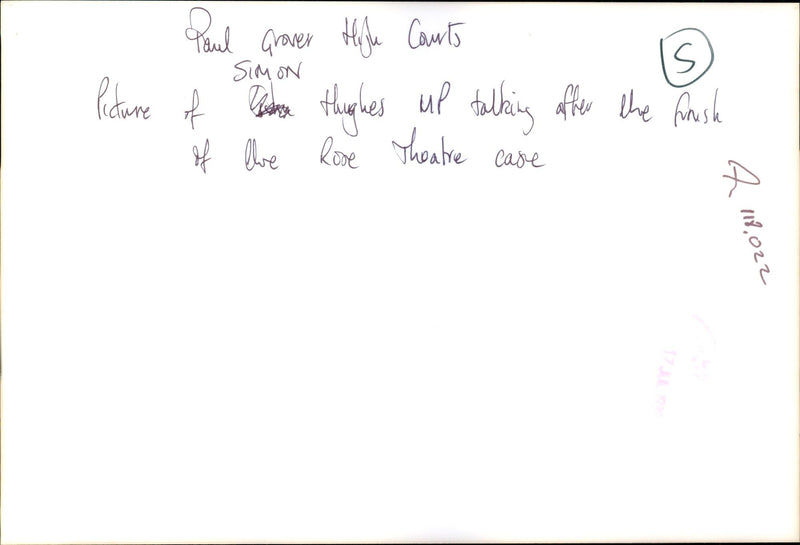 Paul Grover High Courts
S
SIMON
Picture of Hughes MP talking after the finish
of the Rose Theatre case
118,022